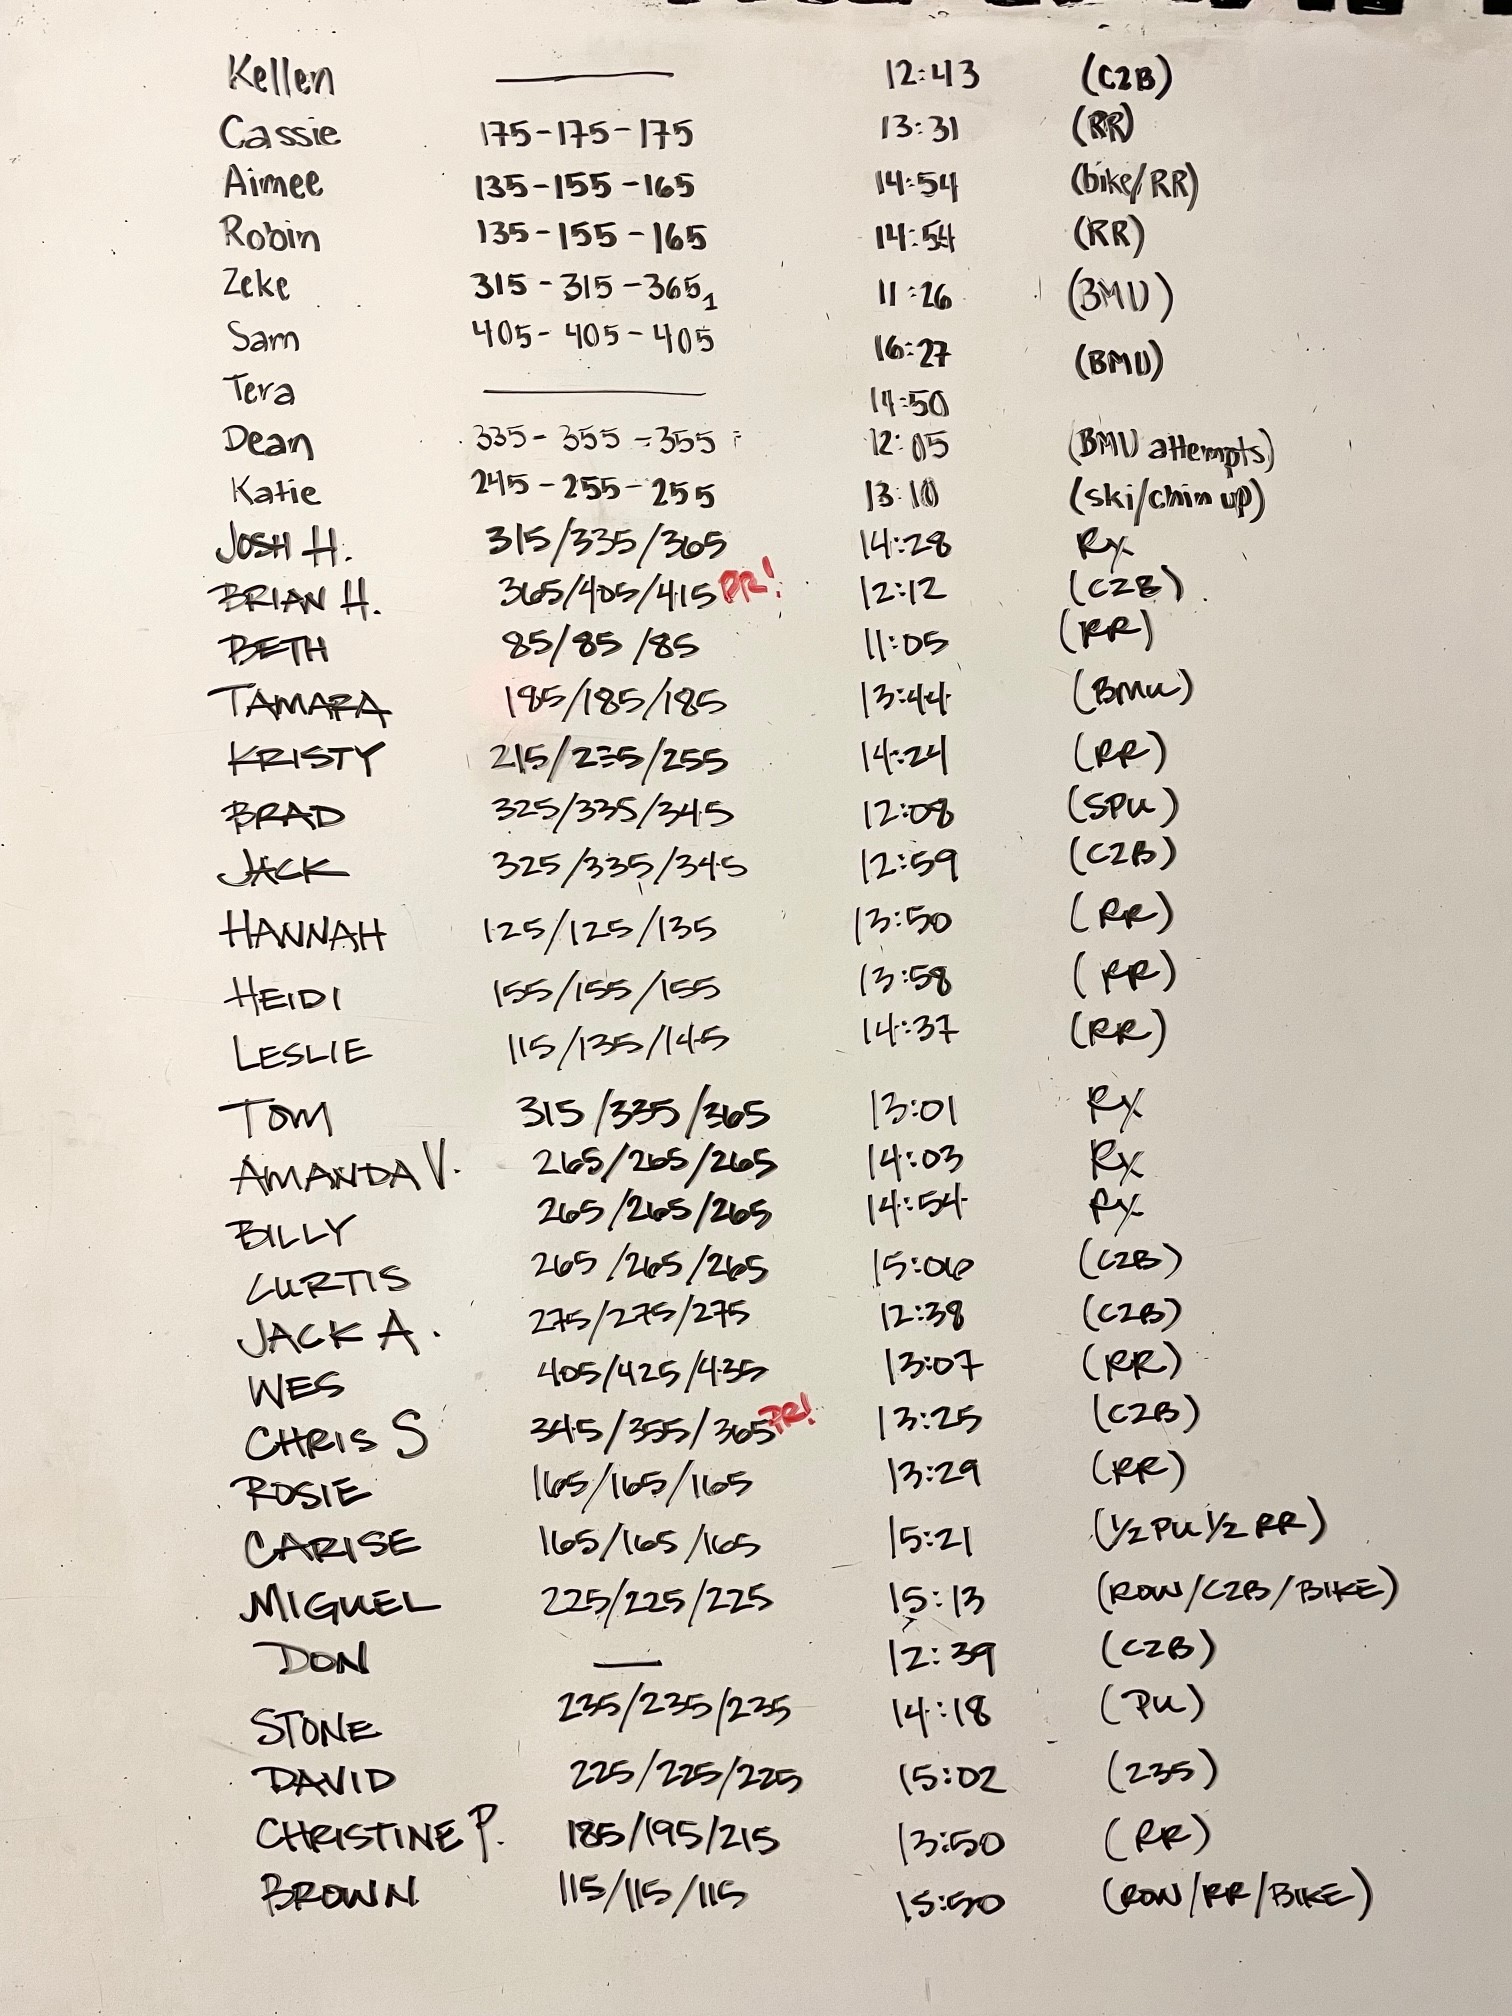 Kellen ——— 12:43 (C2B)
Cassie 175-175-175 13:31 (RR)
Aimee 135-155-165 14:54 (bike/RR)
Robin 135-155-165 14:54 (RR)
Zeke 315-315-365₁ 11:26 (BMU)
Sam 405-405-405 16:27 (BMU)
Tera ——— 14:50
Dean 335-355-355 12:05 (BMU attempts)
Katie 245-255-255 13:10 (ski/chin up)
JOSH H. 315/335/365 14:28 Rx
BRIAN H. 365/405/415 PR! 12:12 (C2B)
BETH 85/85/85 11:05 (RR)
TAMARA 185/185/185 13:44 (BMU)
KRISTY 215/235/255 14:24 (RR)
BRAD 325/335/345 12:08 (SPU)
JACK 325/335/345 12:59 (C2B)
HANNAH 125/125/135 13:50 (RR)
HEIDI 155/155/155 13:58 (RR)
LESLIE 115/135/145 14:37 (RR)
TOM 315/335/365 13:01 Rx
AMANDA V. 265/265/265 14:03 Rx
BILLY 265/265/265 14:54 Rx
CURTIS 265/265/265 15:06 (C2B)
JACK A. 275/275/275 12:38 (C2B)
WES 405/425/435 13:07 (RR)
CHRIS S 345/355/365 PR! 13:25 (C2B)
ROSIE 165/165/165 13:29 (RR)
CARISE 165/165/165 15:21 (1/2 PU 1/2 RR)
MIGUEL 225/225/225 15:13 (ROW/C2B/BIKE)
DON — 12:39 (C2B)
STONE 235/235/235 14:18 (PU)
DAVID 225/225/225 15:02 (235)
CHRISTINE P. 185/195/215 13:50 (RR)
BROWN 115/115/115 15:50 (ROW/RR/BIKE)